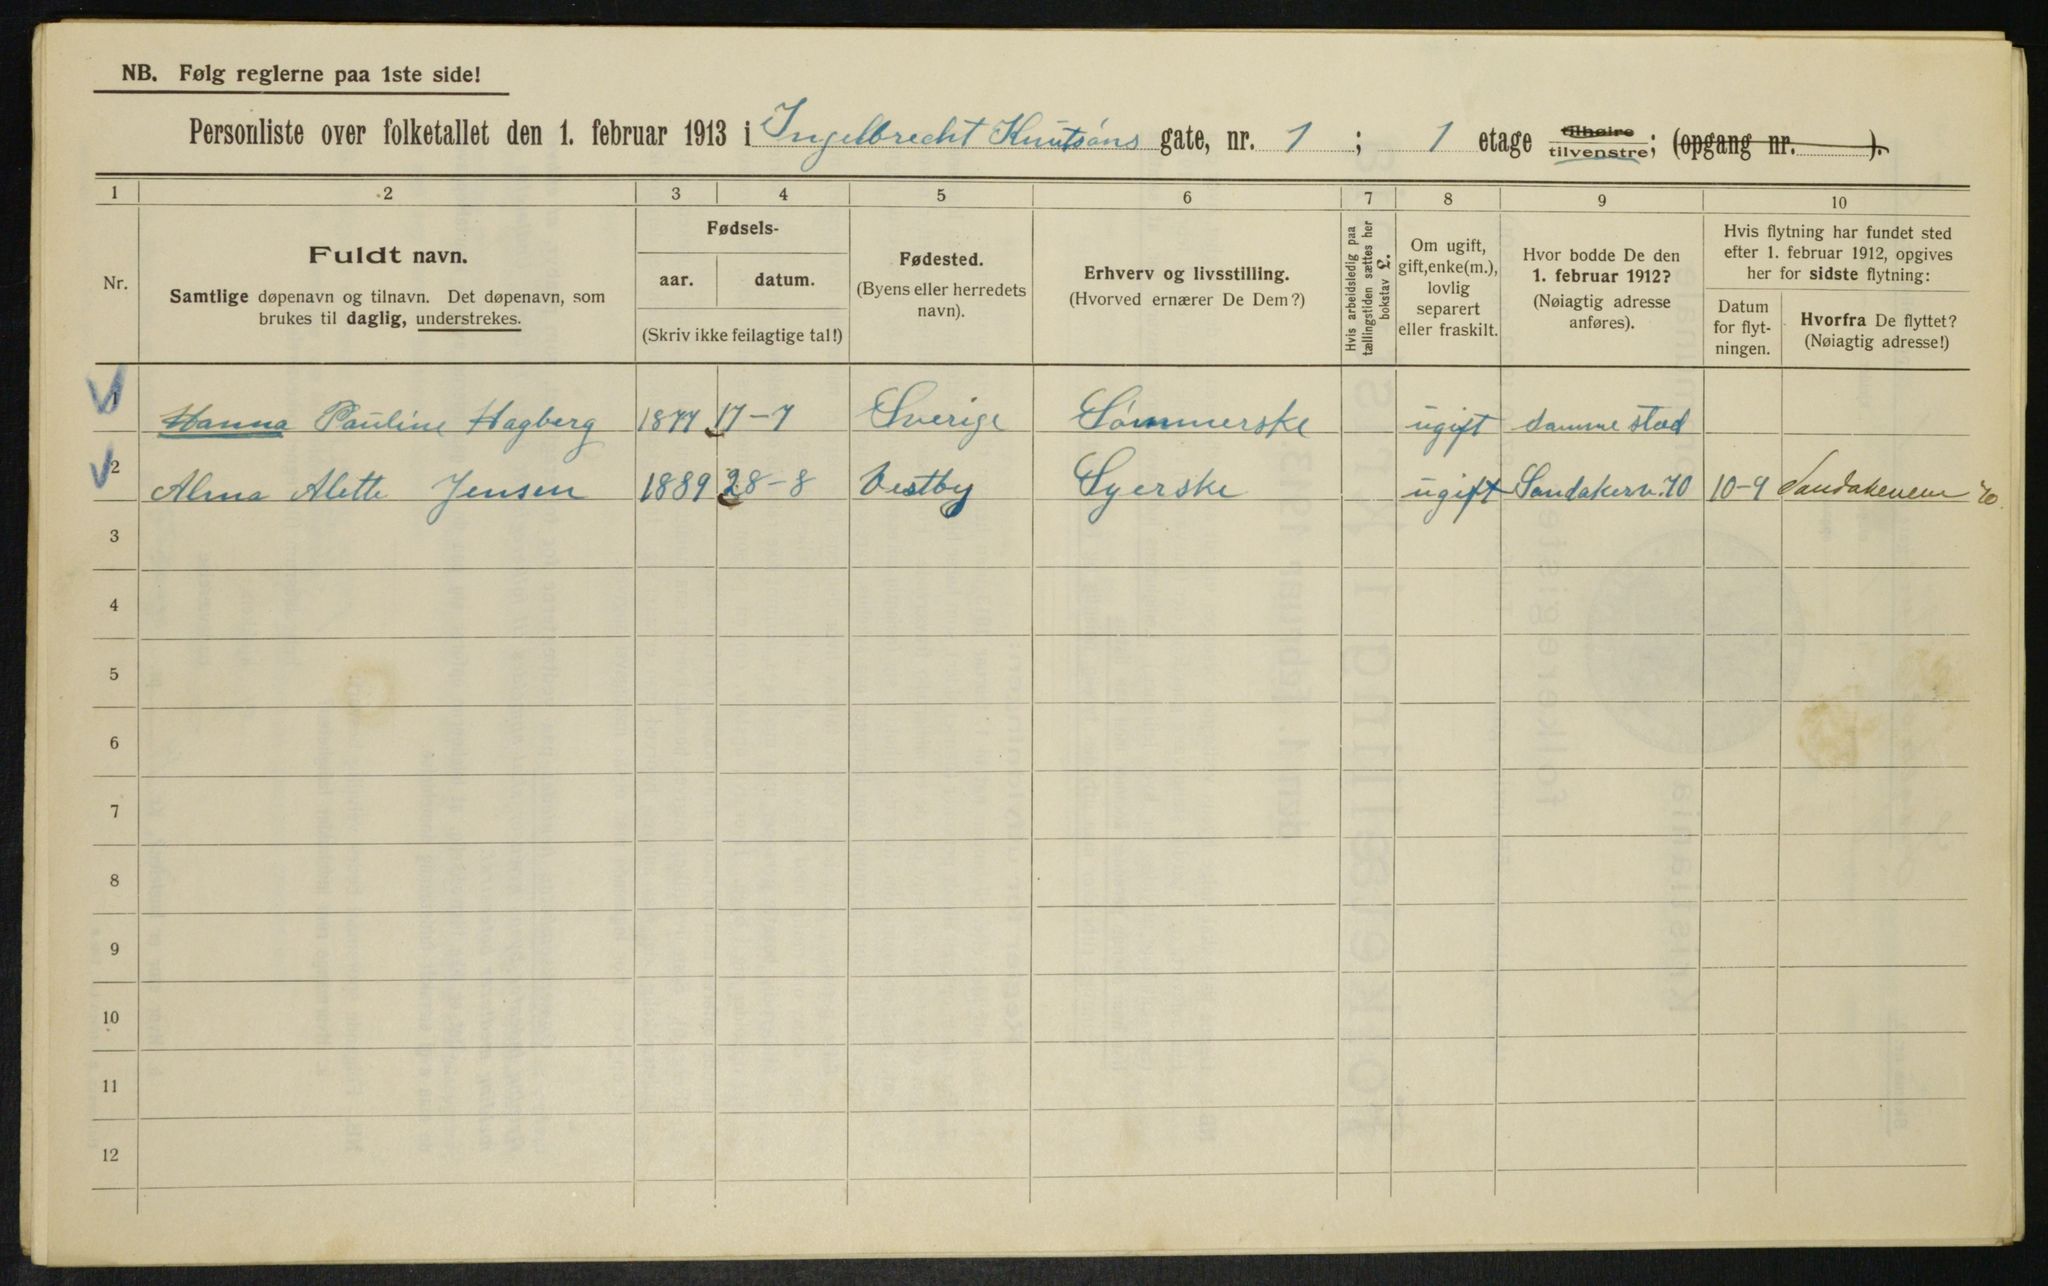 NB. Følg reglerne paa 1ste side!
Personliste over folketallet den 1. februar 1913 i Ingelbrecht Knutsøns gate, nr. 1 ; 1 etage tilhøire tilvenstre; (opgang nr. ).
1 2 3 4 5 6 7 8 9 10
Nr.
Fuldt navn.
Samtlige døpenavn og tilnavn. Det døpenavn, som
brukes til daglig, understrekes.
Fødsels-
aar. datum.
(Skriv ikke feilagtige tal!)
Fødested.
(Byens eller herredets
navn).
Erhverv og livsstilling.
(Hvorved ernærer De Dem?)
Hvis arbeidsledig paa
tællingstiden sættes her
bokstav L.
Om ugift,
gift, enke(m.),
lovlig
separert
eller fraskilt.
Hvor bodde De den
1. februar 1912?
(Nøiagtig adresse
anføres).
Hvis flytning har fundet sted
efter 1. februar 1912, opgives
her for sidste flytning:
Datum
for flyt-
ningen.
Hvorfra De flyttet?
(Nøiagtig adresse!)
1 Hanna Pauline Hagberg 1877 17-7 Sverige Sømmerske ugift samme sted
2 Alma Alette Jensen 1889 28-8 Vestby Syerske ugift Sandakerv. 70 10-9 Sandakerveien 70
3
4
5
6
7
8
9
10
11
12